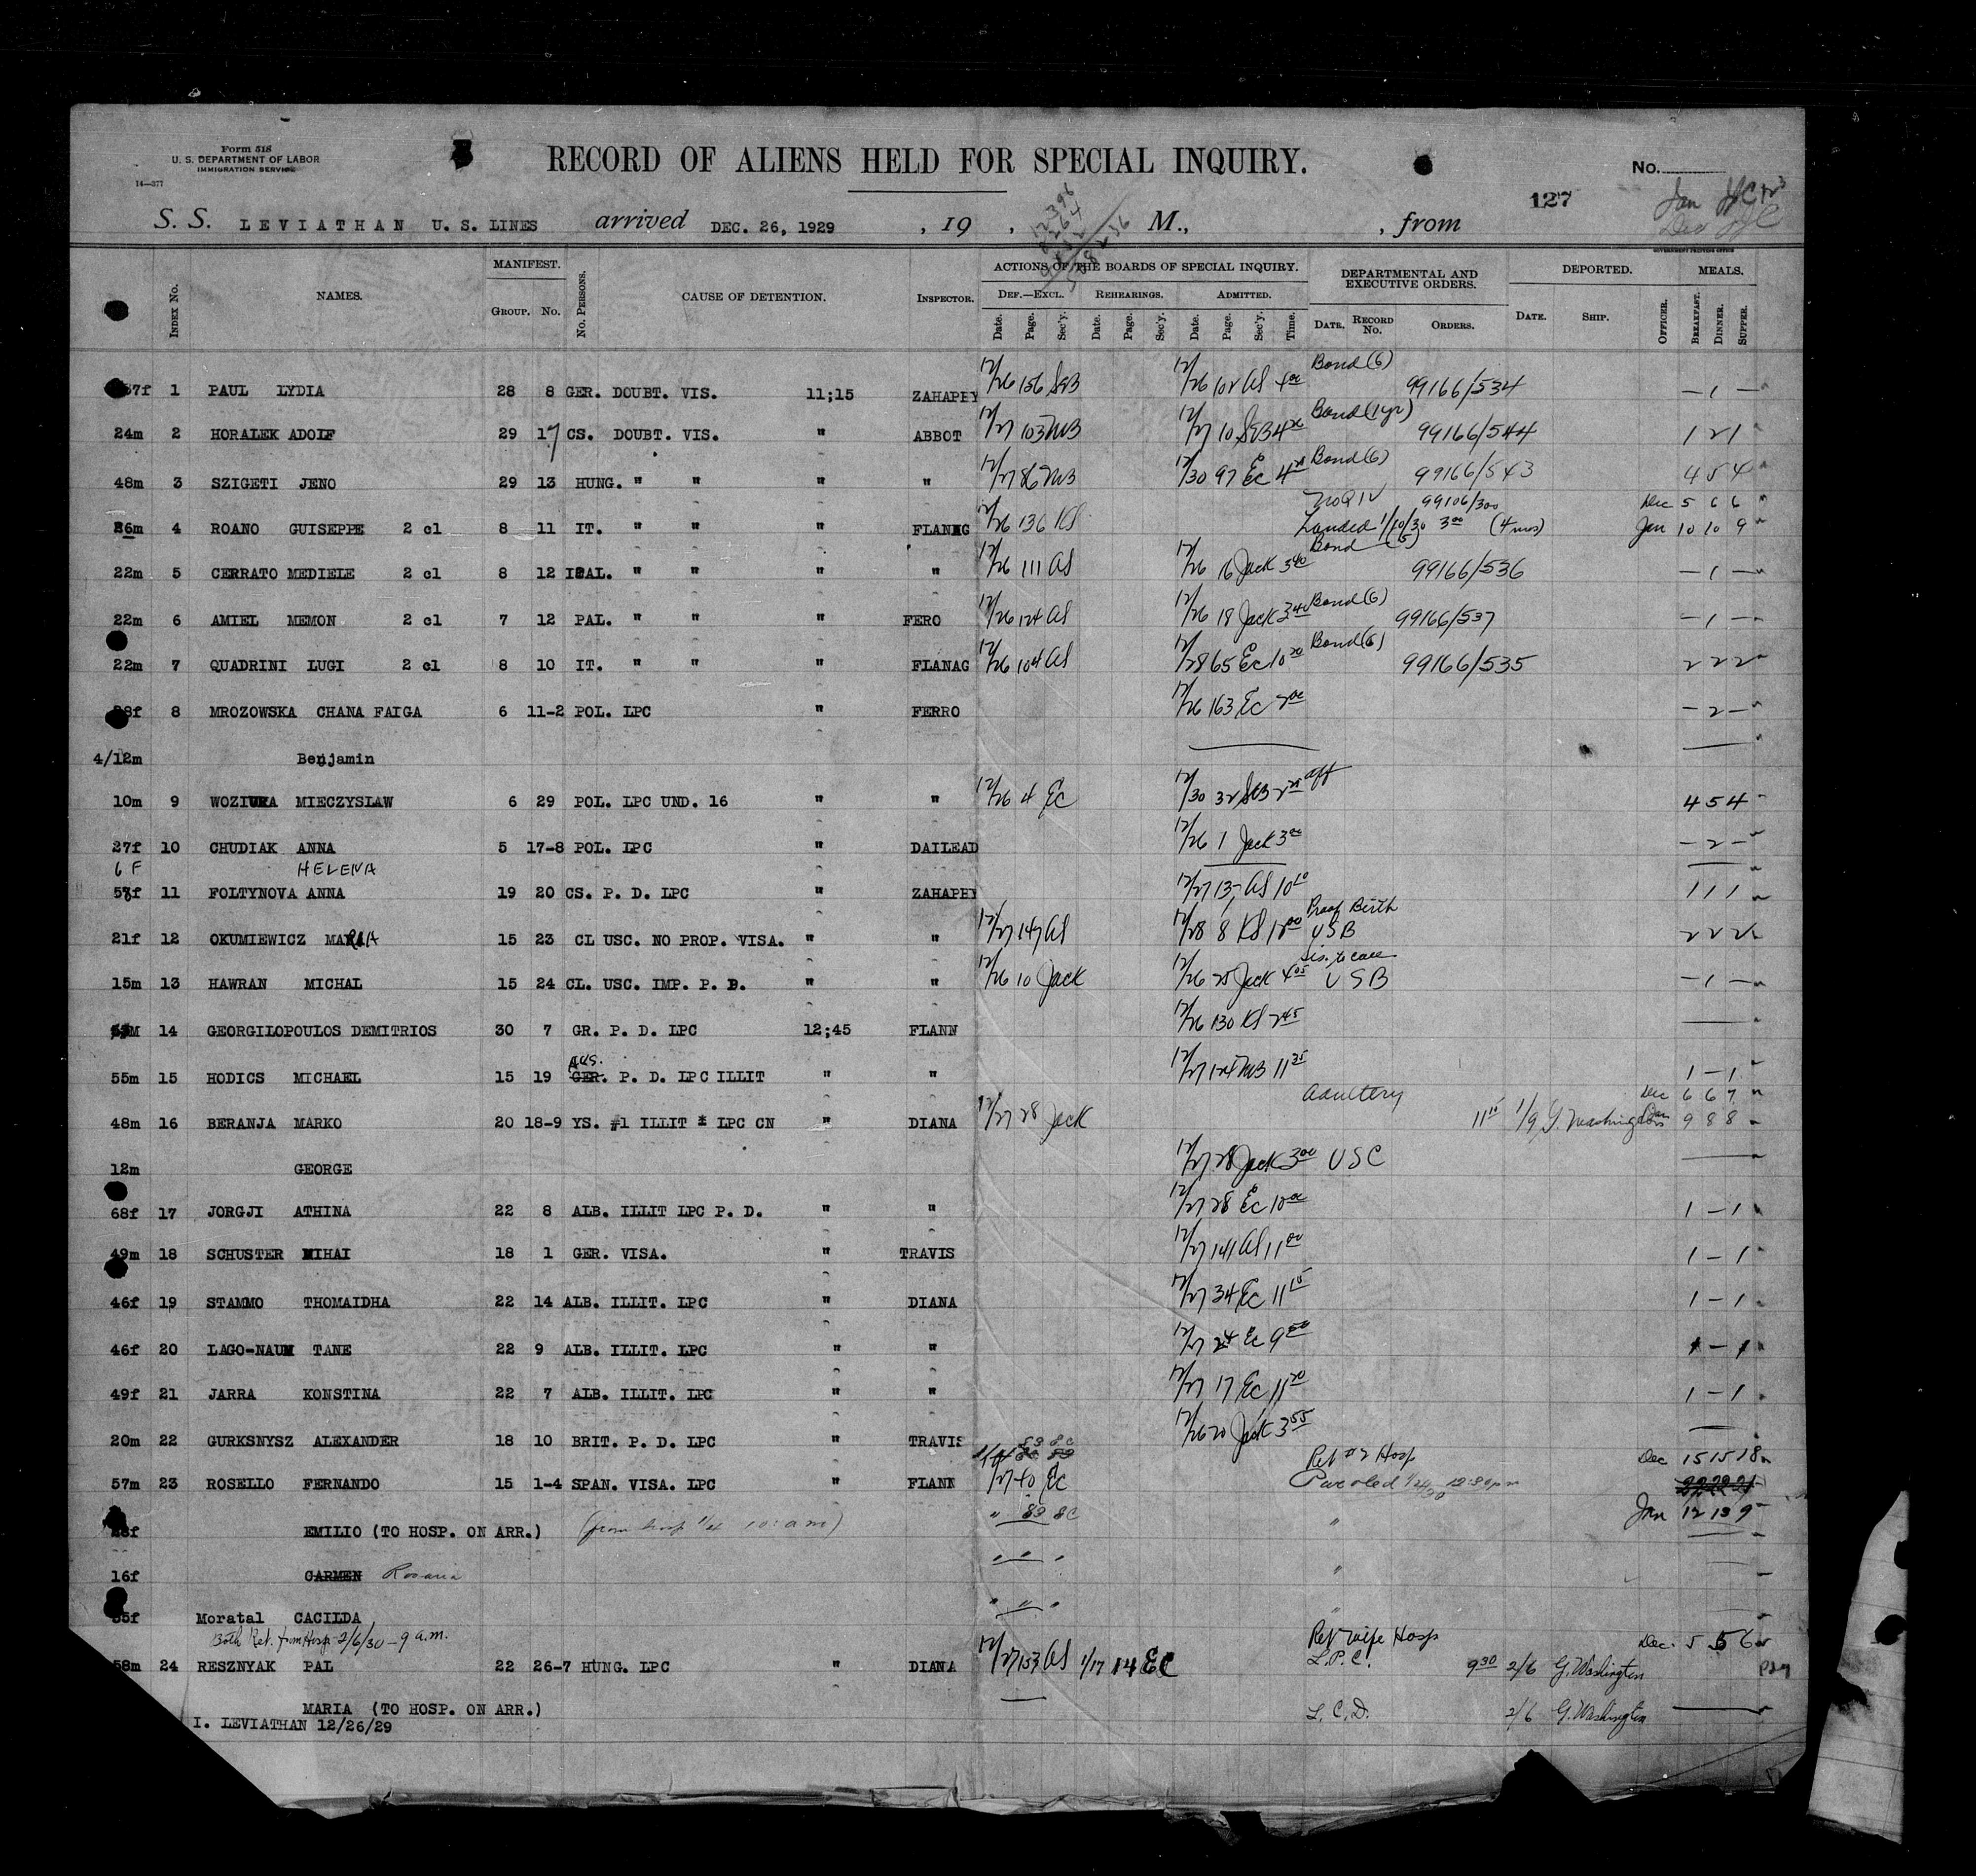 Form 518
U. S. DEPARTMENT OF LABOR
IMMIGRATION SERVICE
14—377
RECORD OF ALIENS HELD FOR SPECIAL INQUIRY.
No.
127
S. S. LEVIATHAN U. S. LINES arrived DEC. 26, 1929 , 19 , M., , from
GOVERNMENT PRINTING OFFICE
INDEX No. NAMES. MANIFEST. GROUP. No. No. PERSONS. CAUSE OF DETENTION. INSPECTOR. ACTIONS OF THE BOARDS OF SPECIAL INQUIRY. DEPARTMENTAL AND EXECUTIVE ORDERS. DEPORTED. MEALS.
DEF.—EXCL. REHEARINGS. ADMITTED.
Date. Page. Sec'y. Date. Page. Sec'y. Date. Page. Sec'y. Time. DATE. RECORD No. ORDERS. DATE. SHIP. OFFICER. BREAKFAST. DINNER. SUPPER.
Bond (6)
37f 1 PAUL LYDIA 28 8 GER. DOUBT. VIS. 11;15 ZAHAPEY 12/26 156 SEB 12/26 102 AS 4 00 99166/534 — 1 —
Bond (1yr)
24m 2 HORALEK ADOLF 29 17 CS. DOUBT. VIS. " ABBOT 12/27 103 MB 12/27 10 SEB 4 20 99166/544 1 2 1
Bond (6)
48m 3 SZIGETI JENO 29 13 HUNG. " " " " 12/27 86 MB 12/30 97 EC 4 99166/543 4 5 4
99106/300 Dec 5 6 6
26m 4 ROANO GUISEPPE 2 cl 8 11 IT. " " " FLANNG 12/26 136 KS Landed 1/10/30 3 00 (4 mos) Jan 10 10 9
Bond (5)
22m 5 CERRATO MEDIELE 2 cl 8 12 ITAL. " " " " 12/26 111 AS 12/26 16 Jack 3 40 99166/536 — 1 —
Bond (6)
22m 6 AMIEL MEMON 2 cl 7 12 PAL. " " " FERO 12/26 124 AS 12/26 18 Jack 3 40 99166/537 — 1 —
Bond (6)
22m 7 QUADRINI LUGI 2 cl 8 10 IT. " " " FLANAG 12/26 104 AS 12/28 65 EC 10 20 99166/535 2 2 2
28f 8 MROZOWSKA CHANA FAIGA 6 11-2 POL. LPC " FERRO 12/26 163 EC 2 00 — 2 —
4/12m Benjamin
10m 9 WOZIURA MIECZYSLAW 6 29 POL. LPC UND. 16 " " 12/26 4 EC 12/30 32 SEB 2 25 aff 4 5 4
27f 10 CHUDIAK ANNA 5 17-8 POL. LPC " DAILEAD 12/26 1 Jack 3 00 — 2 —
6 F HELENA
57f 11 FOLTYNOVA ANNA 19 20 CS. P. D. LPC " ZAHAPEY 12/27 13 AS 10 10 1 1 1
Proof Birth
21f 12 OKUMIEWICZ MARIA 15 23 CL USC. NO PROP. VISA. " " 12/27 147 AS 12/28 8 KS 12 00 USB 2 2 2
Sis. to care
15m 13 HAWRAN MICHAL 15 24 CL. USC. IMP. P. D. " " 12/26 10 Jack 12/26 25 Jack 4 05 USB — 1 —
M 14 GEORGILOPOULOS DEMITRIOS 30 7 GR. P. D. LPC 12;45 FLANN 12/26 130 KS 2 45
Aus.
55m 15 HODICS MICHAEL 15 19 GER. P. D. LPC ILLIT " " 12/27 124 MB 11 35 1 — 1
Adultery Dec 6 6 7
48m 16 BERANJA MARKO 20 18-9 YS. #1 ILLIT & LPC CN " DIANA 12/27 28 Jack 11 15 1/9 G. Washington Jan 9 8 8
12m GEORGE 12/27 28 Jack 3 00 USC
68f 17 JORGJI ATHINA 22 8 ALB. ILLIT LPC P. D. " " 12/27 28 EC 10 00 1 — 1
49m 18 SCHUSTER MIHAI 18 1 GER. VISA. " TRAVIS 12/27 141 AS 11 00 1 — 1
46f 19 STAMMO THOMAIDHA 22 14 ALB. ILLIT. LPC " DIANA 12/27 34 EC 11 15 1 — 1
46f 20 LAGO-NAUM TANE 22 9 ALB. ILLIT. LPC " " 12/27 24 EC 9 50 1 — 1
49f 21 JARRA KONSTINA 22 7 ALB. ILLIT. LPC " " 12/27 17 EC 11 20 1 — 1
20m 22 GURKSNYSZ ALEXANDER 18 10 BRIT. P. D. LPC " TRAVIS 12/26 20 Jack 3 55
Ret #2 Hosp Dec 15 15 18
57m 23 ROSELLO FERNANDO 15 1-4 SPAN. VISA. LPC " FLANN EC Paroled 12:30pm
Jan 12 13 9
EMILIO (TO HOSP. ON ARR.) (from hosp 10: am) " 83 EC "
16f CARMEN Rosaria " " " "
55f Moratal CACILDA " " " "
Both Ret. from Hosp 2/6/30 - 9 a.m. Ret wife Hosp Dec. 5 5 6
58m 24 RESZNYAK PAL 22 26-7 HUNG. LPC " DIANA 12/27 153 AS 1/17 14 EC L.P.C. 9 30 2/6 G. Washington
MARIA (TO HOSP. ON ARR.) L.C.D. 2/6 G. Washington
I. LEVIATHAN 12/26/29